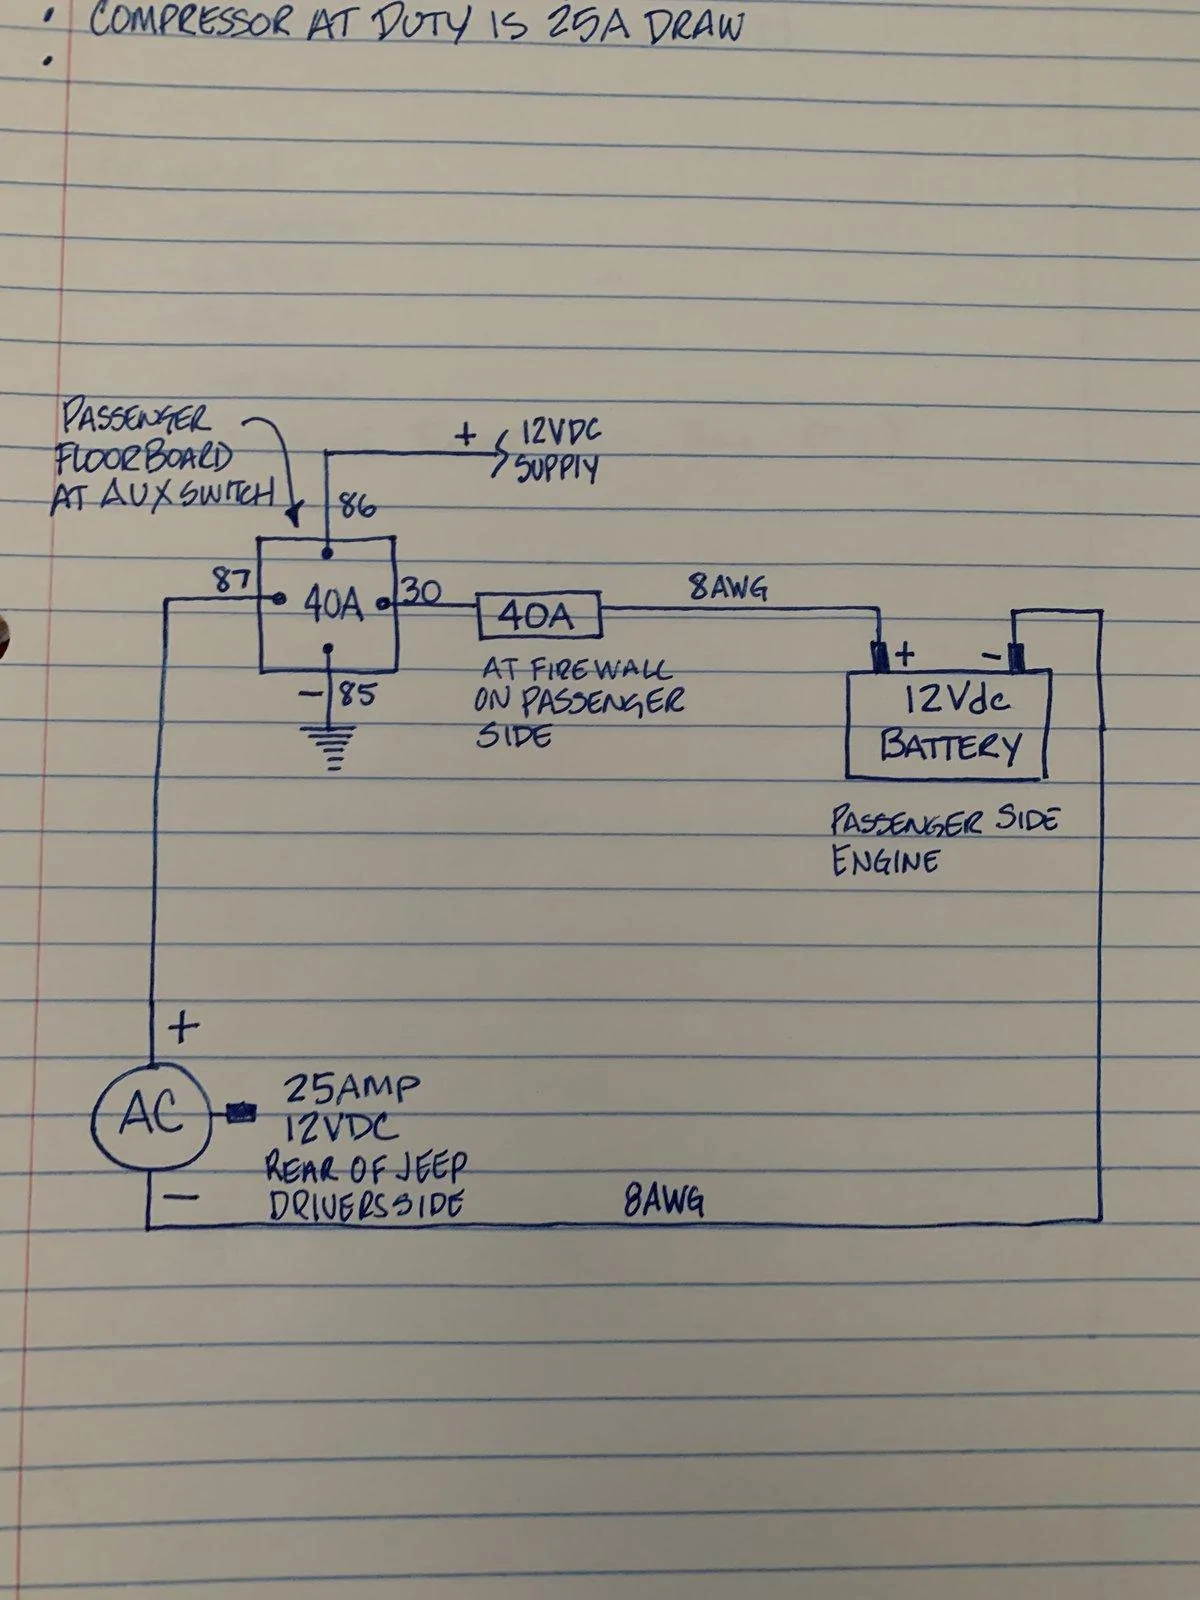 • COMPRESSOR AT DUTY IS 25A DRAW
•
PASSENGER
FLOORBOARD
AT AUX SWITCH
+ 12VDC
SUPPLY
86
87
40A
30
40A
8AWG
- 85
AT FIREWALL
ON PASSENGER
SIDE
+ -
12Vdc
BATTERY
PASSENGER SIDE
ENGINE
+
AC
25AMP
12VDC
REAR OF JEEP
DRIVERS SIDE
-
8AWG